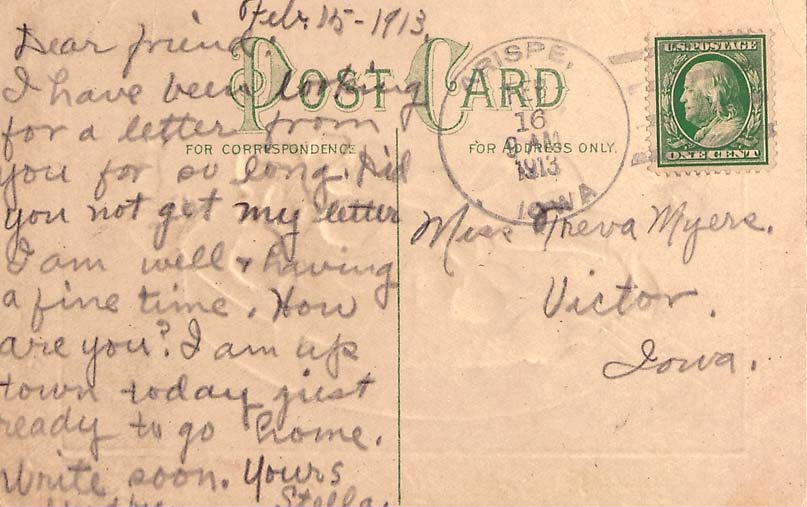 Feb. 15-1913.
Dear friend:
I have been looking
for a letter from
you for so long. Did
you not get my letter
I am well & having
a fine time. How
are you? I am up
town today just
ready to go home.
Write soon. Yours
Stella.
POST CARD
FOR CORRESPONDENCE
FOR ADDRESS ONLY.
FEB
16
9 AM
1913
IOWA
U.S. POSTAGE
ONE CENT
Miss Treva Myers.
Victor,
Iowa.